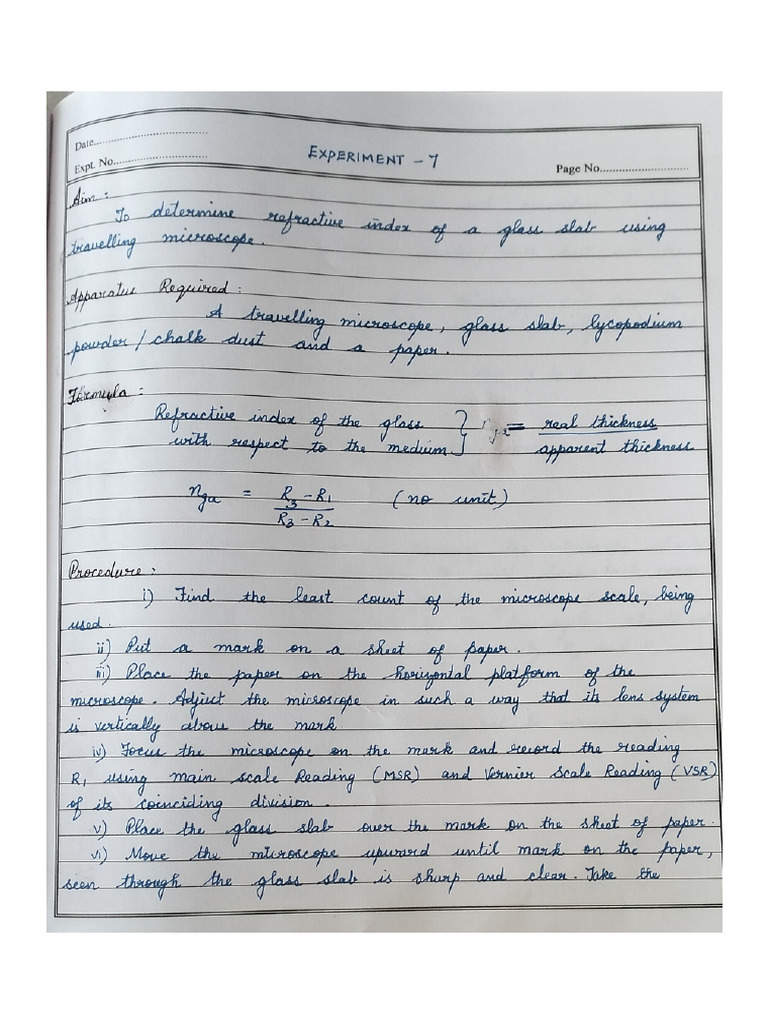 Date
EXPERIMENT - 7
Expt. No.
Page No.
Aim :
To determine refractive index of a glass slab using
travelling microscope.
Apparatus Required :
A travelling microscope, glass slab, lycopodium
powder / chalk dust and a paper.
Formula :
Refractive index of the glass
with respect to the medium } = real thickness
apparent thickness
nga = R3 - R1 (no unit)
R3 - R2
Procedure :
i) Find the least count of the microscope scale, being
used.
ii) Put a mark on a sheet of paper.
iii) Place the paper on the horizontal platform of the
microscope. Adjust the microscope in such a way that its lens system
is vertically above the mark
iv) Focus the microscope on the mark and record the reading
R1 using main scale Reading (MSR) and Vernier Scale Reading (VSR)
of its coinciding division.
v) Place the glass slab over the mark on the sheet of paper.
vi) Move the microscope upward until mark on the paper,
seen through the glass slab is sharp and clear. Take the